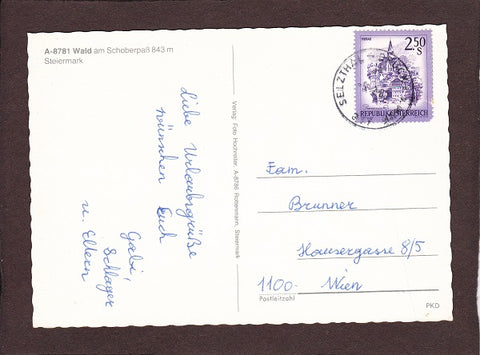 A-8781 Wald am Schoberpaß 843 m
Steiermark
Liebe Urlaubsgrüße
wünschen Euch
Gabi,
Schlager
u. Eltern
Verlag: Foto Hochreiter, A-8786 Rottenmann, Steiermark
2.50
S
REPUBLIK ÖSTERREICH
SELZTHAL
Fam.
Brunner
Hausergasse 8/5
1100. Wien
Postleitzahl
PKD